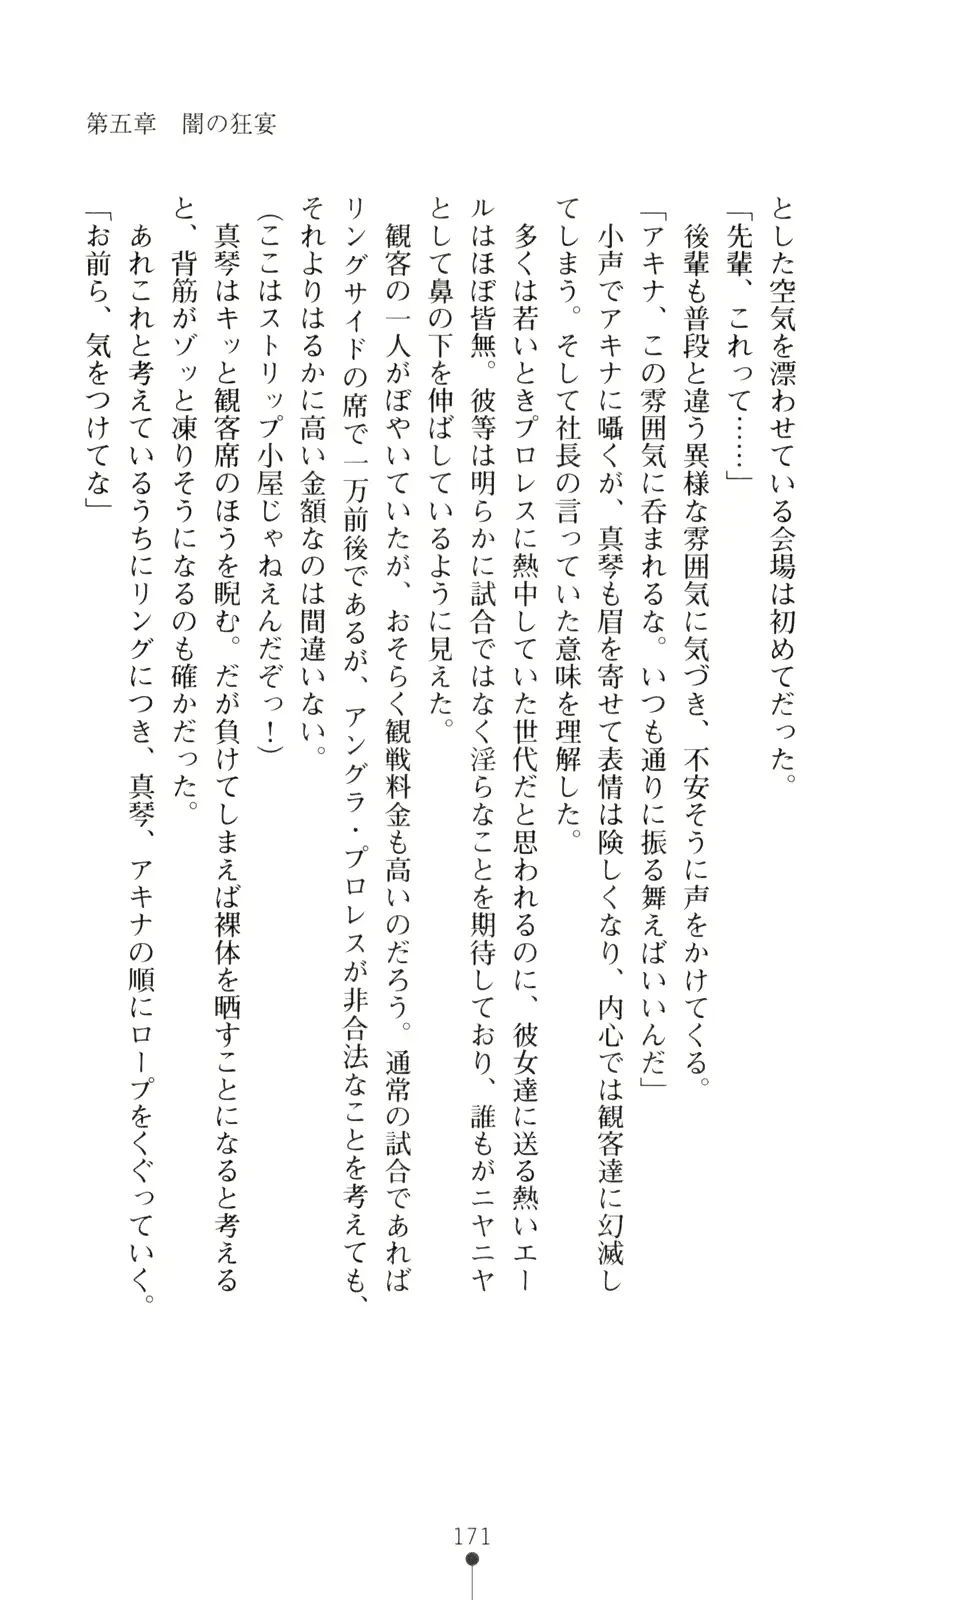 第五章　闇の狂宴
とした空気を漂わせている会場は初めてだった。
「先輩、これって……」
　後輩も普段と違う異様な雰囲気に気づき、不安そうに声をかけてくる。
「アキナ、この雰囲気に呑まれるな。いつも通りに振る舞えばいいんだ」
　小声でアキナに囁くが、真琴も眉を寄せて表情は険しくなり、内心では観客達に幻滅し
てしまう。そして社長の言っていた意味を理解した。
　多くは若いときプロレスに熱中していた世代だと思われるのに、彼女達に送る熱いエー
ルはほぼ皆無。彼等は明らかに試合ではなく淫らなことを期待しており、誰もがニヤニヤ
として鼻の下を伸ばしているように見えた。
　観客の一人がぼやいていたが、おそらく観戦料金も高いのだろう。通常の試合であれば
リングサイドの席で一万前後であるが、アングラ・プロレスが非合法なことを考えても、
それよりはるかに高い金額なのは間違いない。
（ここはストリップ小屋じゃねえんだぞっ！）
　真琴はキッと観客席のほうを睨む。だが負けてしまえば裸体を晒すことになると考える
と、背筋がゾッと凍りそうになるのも確かだった。
　あれこれと考えているうちにリングにつき、真琴、アキナの順にロープをくぐっていく。
「お前ら、気をつけてな」
171